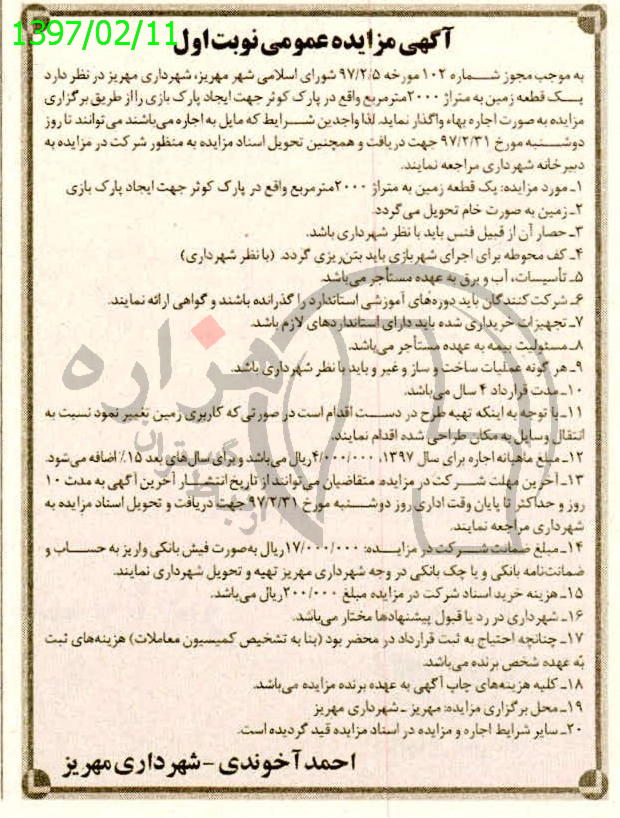 1397/02/11
آگهی مزایده عمومی نوبت اول
به موجب مجوز شماره ۱۰۲ مورخه ۹۷/۲/۵ شورای اسلامی شهر مهریز، شهرداری مهریز در نظر دارد
یک قطعه زمین به متراژ ۲۰۰۰مترمربع واقع در پارک کوثر جهت ایجاد پارک بازی را از طریق برگزاری
مزایده به صورت اجاره بهاء واگذار نماید. لذا واجدین شرایط که مایل به اجاره می‌باشند می‌توانند تا روز
دوشنبه مورخ ۹۷/۲/۳۱ جهت دریافت و همچنین تحویل اسناد مزایده به منظور شرکت در مزایده به
دبیرخانه شهرداری مراجعه نمایند.
۱ـ مورد مزایده: یک قطعه زمین به متراژ ۲۰۰۰مترمربع واقع در پارک کوثر جهت ایجاد پارک بازی
۲ـ زمین به صورت خام تحویل می‌گردد.
۳ـ حصار آن از قبیل فنس باید با نظر شهرداری باشد.
۴ـ کف محوطه برای اجرای شهربازی باید بتن‌ریزی گردد. (با نظر شهرداری)
۵ـ تأسیسات، آب و برق به عهده مستأجر می‌باشد.
۶ـ شرکت‌کنندگان باید دوره‌های آموزشی استاندارد را گذرانده باشند و گواهی ارائه نمایند.
۷ـ تجهیزات خریداری شده باید دارای استانداردهای لازم باشد.
۸ـ مسئولیت بیمه به عهده مستأجر می‌باشد.
۹ـ هر گونه عملیات ساخت و ساز و غیر و باید با نظر شهرداری باشد.
۱۰ـ مدت قرارداد ۴ سال می‌باشد.
۱۱ـ با توجه به اینکه تهیه طرح در دست اقدام است در صورتی که کاربری زمین تغییر نمود نسبت به
انتقال وسایل به مکان طراحی شده اقدام نمایند.
۱۲ـ مبلغ ماهیانه اجاره برای سال ۱۳۹۷، ۴/۰۰۰/۰۰۰ریال می‌باشد و برای سال‌های بعد ۱۵٪ اضافه می‌شود.
۱۳ـ آخرین مهلت شرکت در مزایده: متقاضیان می‌توانند از تاریخ انتشار آخرین آگهی به مدت ۱۰
روز و حداکثر تا پایان وقت اداری روز دوشنبه مورخ ۹۷/۲/۳۱ جهت دریافت و تحویل اسناد مزایده به
شهرداری مراجعه نمایند.
۱۴ـ مبلغ ضمانت شرکت در مزایده: ۱۷/۰۰۰/۰۰۰ریال به‌صورت فیش بانکی واریز به حساب و
ضمانت‌نامه بانکی و یا چک بانکی در وجه شهرداری مهریز تهیه و تحویل شهرداری نمایند.
۱۵ـ هزینه خرید اسناد شرکت در مزایده مبلغ ۲۰۰/۰۰۰ریال می‌باشد.
۱۶ـ شهرداری در رد یا قبول پیشنهادها مختار می‌باشد.
۱۷ـ چنانچه احتیاج به ثبت قرارداد در محضر بود (بنا به تشخیص کمیسیون معاملات) هزینه‌های ثبت
به عهده شخص برنده می‌باشد.
۱۸ـ کلیه هزینه‌های چاپ آگهی به عهده برنده مزایده می‌باشد.
۱۹ـ محل برگزاری مزایده: مهریز ـ شهرداری مهریز
۲۰ـ سایر شرایط اجاره و مزایده در اسناد مزایده قید گردیده است.
احمد آخوندی - شهرداری مهریز
هزاره